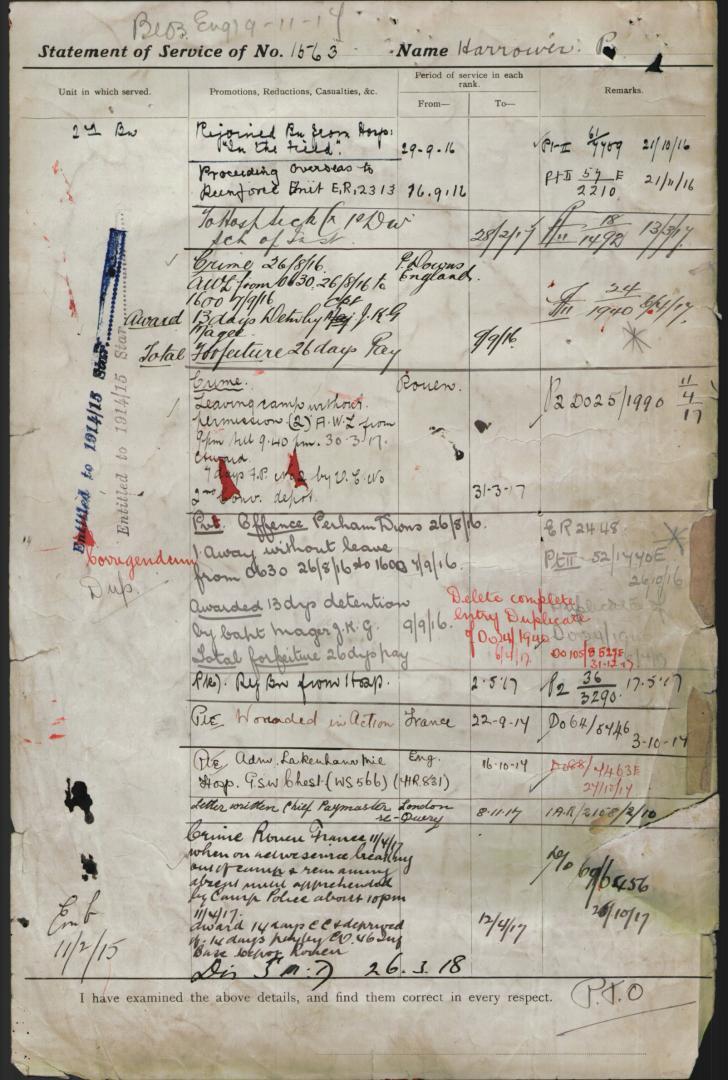 Statement of Service of No. 1563 Name Harrower P.
Unit in which served.
Promotions, Reductions, Casualties, &c.
Period of service in each rank.
From—
To—
Remarks.
2nd Bn
Rejoined Bn from Hosp:
"In the Field".
29-9-16
Pt-II 61/4709 21/10/16
Proceeding overseas to
Reinforce Unit E.R. 2313
16.9.16
Pt II 57 E/2210 21/11/16
To Hosp Sick
Sch of Inst
28/2/17
18/1492 13/3/17
Crime 26/8/16.
P. Downs England.
AWL from 0630, 26/8/16 to
1600 7/9/16
Award 13 days Detn by Capt J.K.G
Mager
24/1940 6/4/17
Total Forfeiture 26 days Pay
9/9/16.
Crime.
Rouen.
Leaving camp without
permission (2) A.W.L from
9pm till 9.40 pm. 30-3-17.
Award
7 days F.P. No 2 by O.C. No
2nd Conv. depot.
31-3-17
P2 DO25/1990 11/4/17
Entitled to 1914/15 Star
Entitled to 1914/15 Star
Corrigendum
Dup.
Pvt. Offence Perham Downs 26/8/16.
Away without leave
from 0630 26/8/16 to 1600 7/9/16.
ER 2448
Pt II - 52/1770E
26/10/16
Awarded 13 dys detention
by Capt Mager J.K.G.
Total forfeiture 26 days pay
9/9/16.
Delete complete
Entry Duplicate
of Do 24/1940
6/4/17
Duplicate of
Do 24/1940
Do 105/8529E
31-12-17
Pte). Rej Bn from Hosp.
2.5.17
P2 36/3290. 17.5.17
Pte Wounded in Action
France
22-9-17
Do 64/5446
3-10-17
Pte Adm. Lakenham Mil
Hosp. GSW Chest (WS566) (HR.831)
Eng.
16-10-17
Do 68/4463E
27/10/17
Letter written Chief Paymaster London
re-Query
8-11-17
Crime Rouen France 11/4/17
when on active service breaking
out of camp & remaining
absent until apprehended
by Camp Police about 10pm
11/4/17.
Award 14 days CC & deprived
of 14 days pay by CO. 46 Inf
Base Depot Rouen
12/4/17
26/10/17
11/2/15
26.3.18
I have examined the above details, and find them correct in every respect.
P.T.O